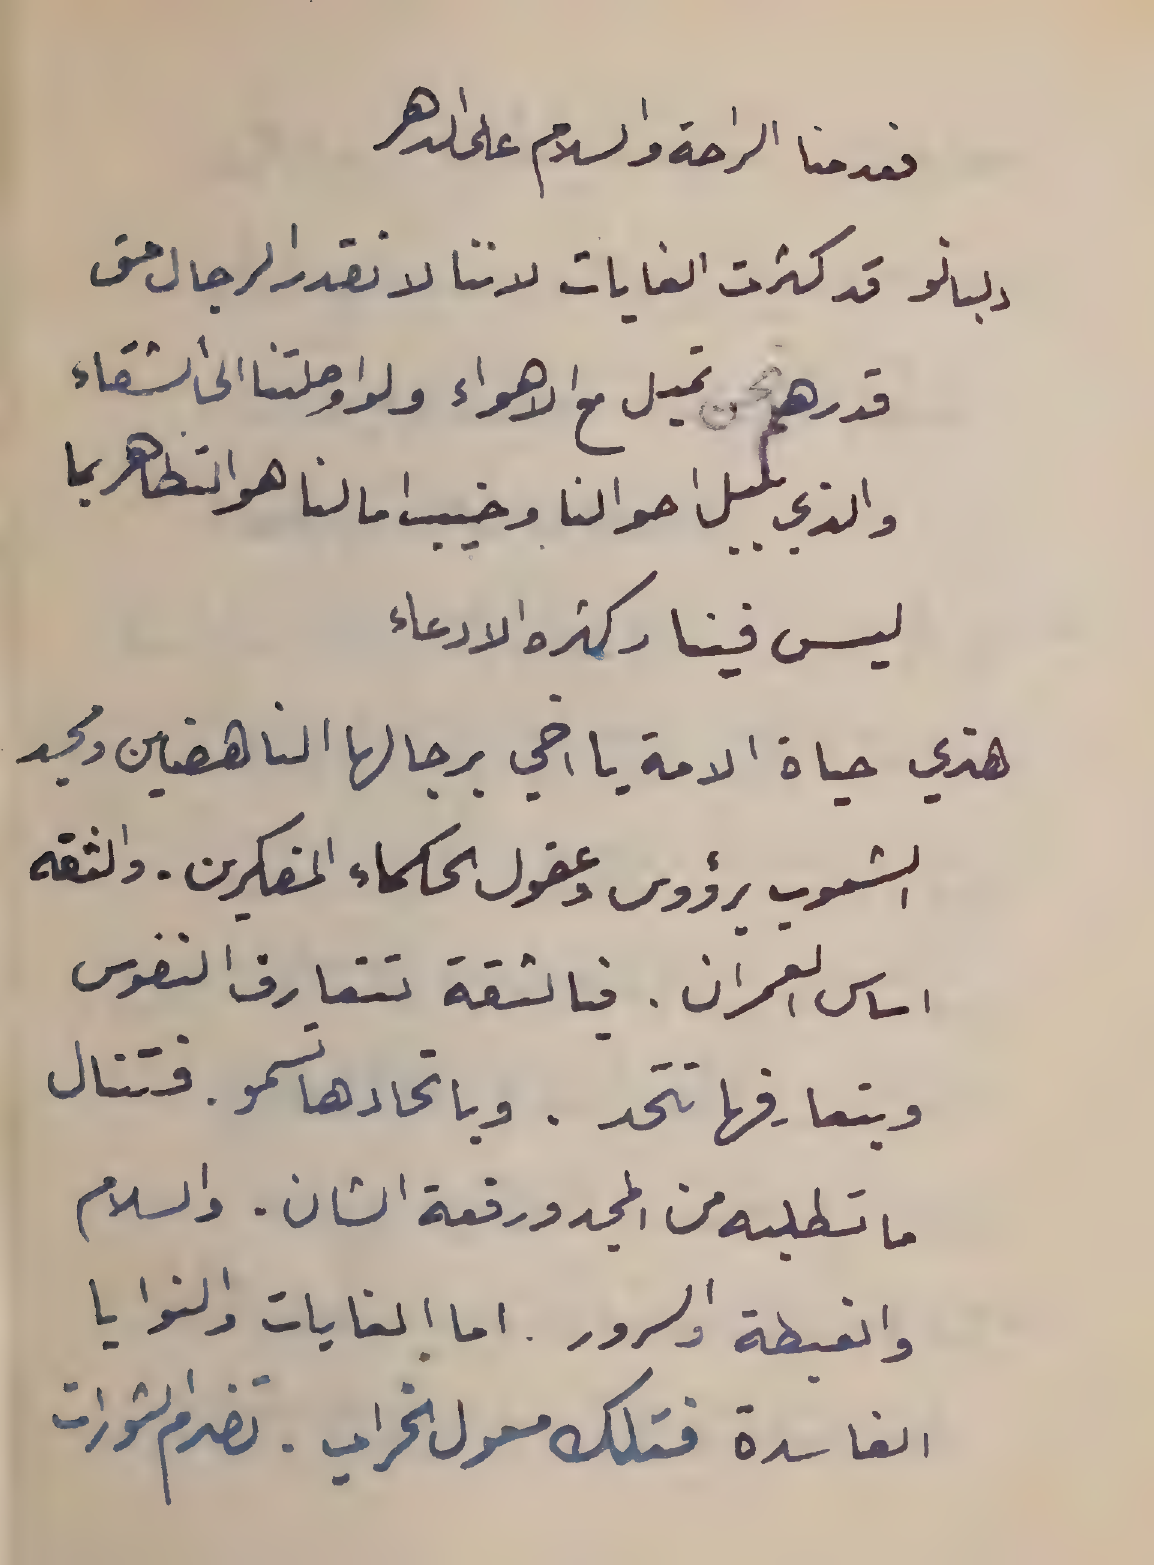 فعدمنا الراحة والسلام على الدهر
قد كثرت الغايات لاننا لا نقدر الرجال حق
قدرهم نحن نميل مع الاهواء ولو اوصلتنا الى الشقاء
والذي احوالنا وخيب امالنا هو التظاهر بما
ليس فينا وكثره الادعاء
هذي حياة الامة يا اخي برجالها الناهضين ومجد
الشعوب برؤوس وعقول الحكماء المفكرين. والثقه
اساس العمران. فبالثقة تتعارف النفوس
وبتعارفها تتحد. وباتحادها تسمو. فتنال
ما تطلبه من المجد ورفعة الشان. والسلام
والغبطة والسرور. اما الغايات والنوايا
الفاسدة فتلك معول الخراب. تضرم الثورات